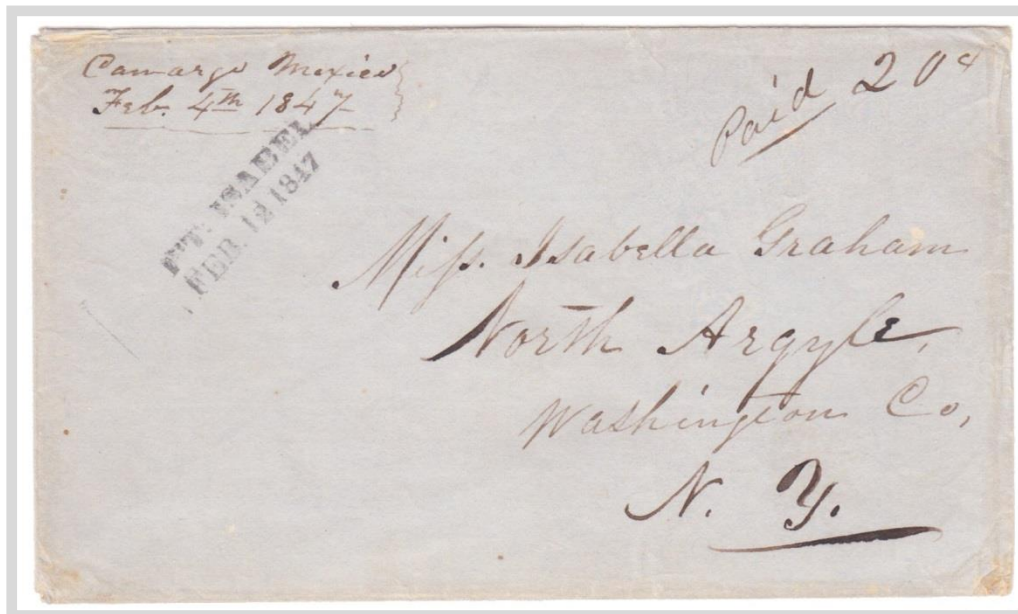 Camargo Mexico
Feb. 4th 1847
Paid 20 cs
PT. ISABEL
FEB. 12 1847
Miss. Isabella Graham
North Argyle,
Washington Co,
N. Y.